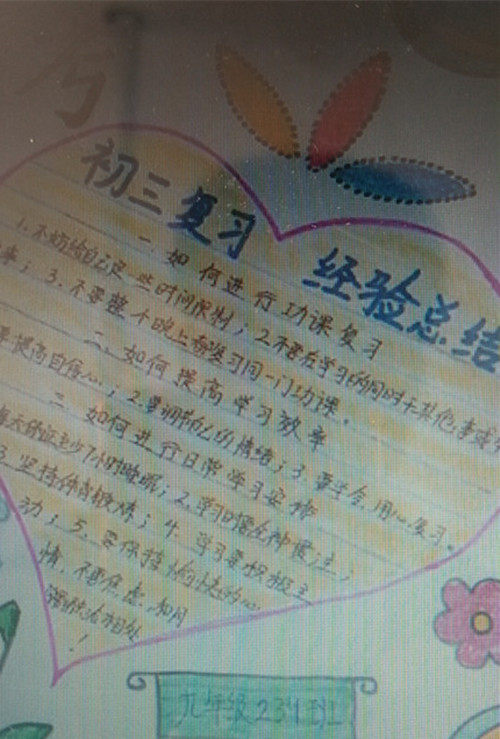 初三复习 经验总结
一 如何进行功课复习
1.不妨给自己定一些时间限制；2.不要在学习的同时干其他事或
3.不要整个晚上都复习同一门功课。
二、如何提高学习效率
要提高自信心；2.要调节自己的情绪；3.要学会用心复习。
三 如何进行日常学习安排
每天保证至少7小时睡眠；2.学习时要全神贯注；
3.坚持体育锻炼；4.学习要积极主
动；5.要保持愉快的心
情，不要焦虑，和同
相处
！
九年级231班